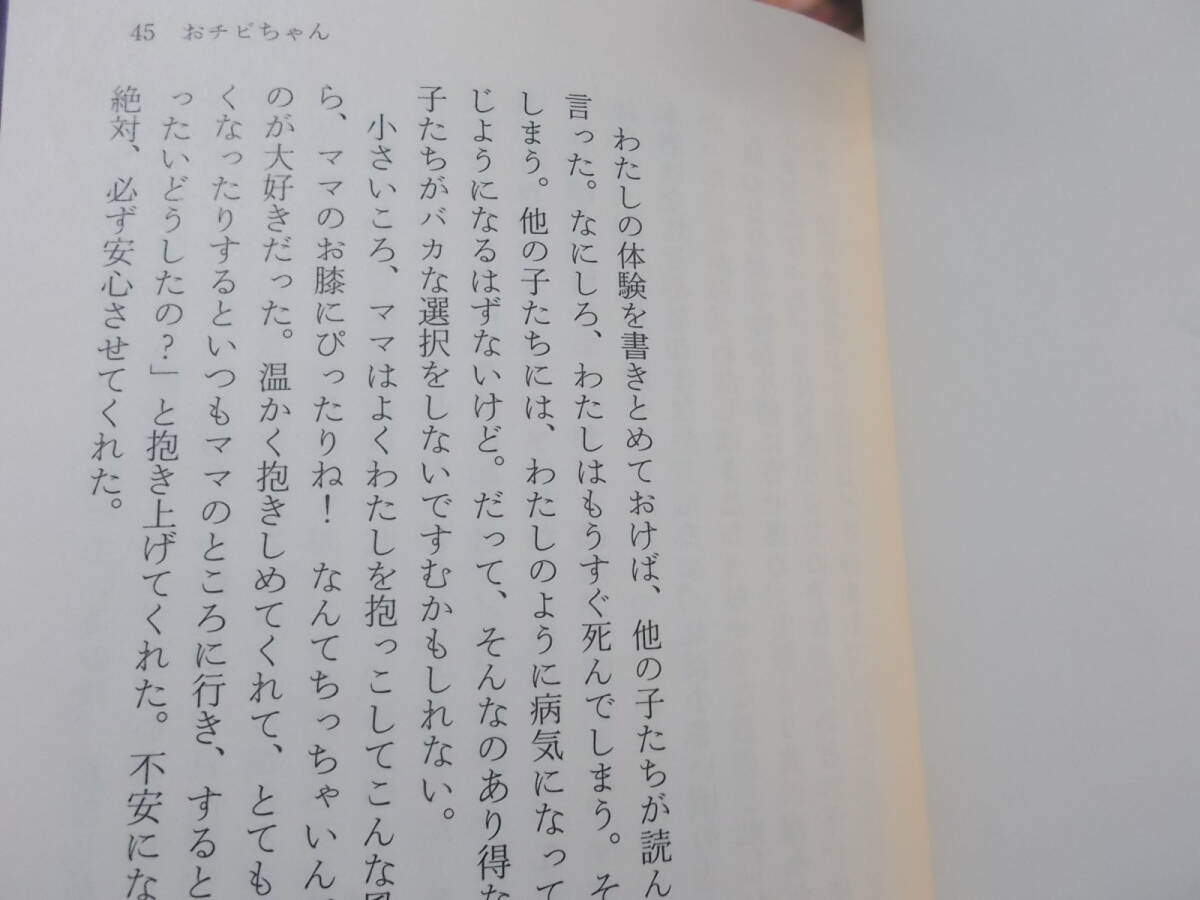 45 おチビちゃん
わたしの体験を書きとめておけば、他の子たちが読ん
言った。なにしろ、わたしはもうすぐ死んでしまう。そ
しまう。他の子たちには、わたしのように病気になって
じようになるはずないけど。だって、そんなのあり得な
子たちがバカな選択をしないですむかもしれない。
小さいころ、ママはよくわたしを抱っこしてこんな風
ら、ママのお膝にぴったりね！ なんてちっちゃいん
のが大好きだった。温かく抱きしめてくれて、とても
くなったりするといつもママのところに行き、すると
ったいどうしたの？」と抱き上げてくれた。不安にな
絶対、必ず安心させてくれた。